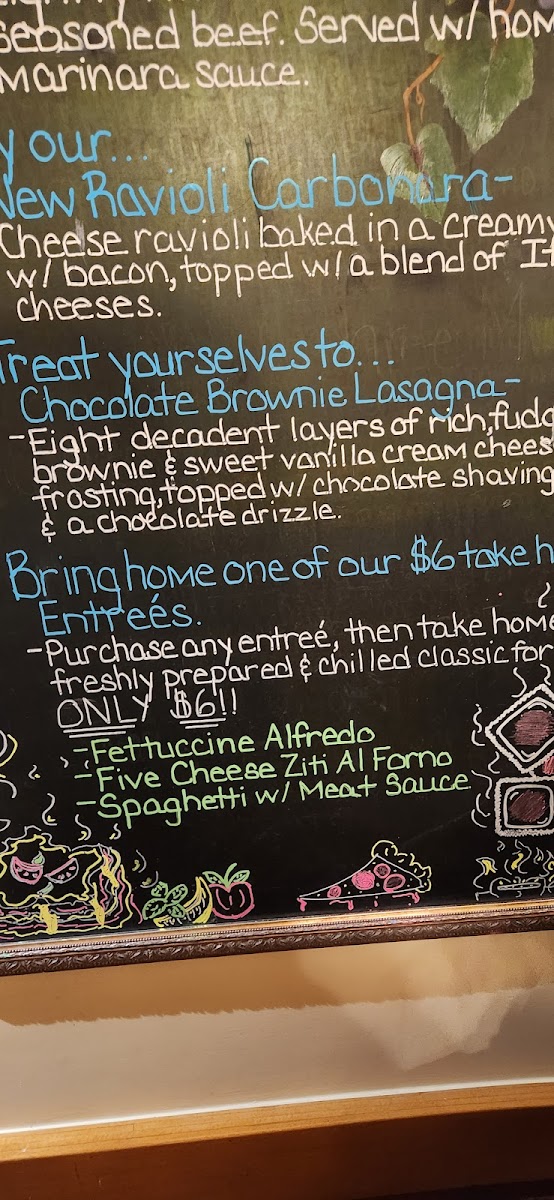 seasoned beef. Served w/ hom
marinara sauce.
your...
New Ravioli Carbonara-
Cheese ravioli baked in a creamy
w/ bacon, topped w/ a blend of It
cheeses.
Treat yourselves to...
Chocolate Brownie Lasagna-
-Eight decadent layers of rich, fudg
brownie & sweet vanilla cream chees
frosting, topped w/ chocolate shaving
& a chocolate drizzle.
Bring home one of our $6 take h
Entreés.
-Purchase any entreé, then take home
freshly prepared & chilled classic for
ONLY $6!!
-Fettuccine Alfredo
-Five Cheese Ziti Al Forno
-Spaghetti w/ Meat Sauce